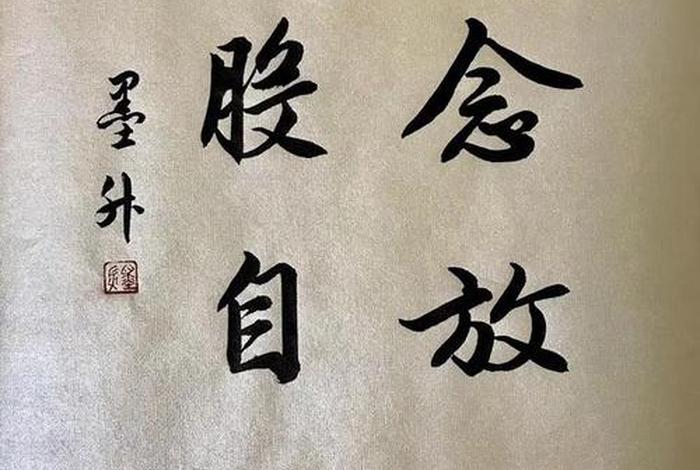 念放
般自
墨升